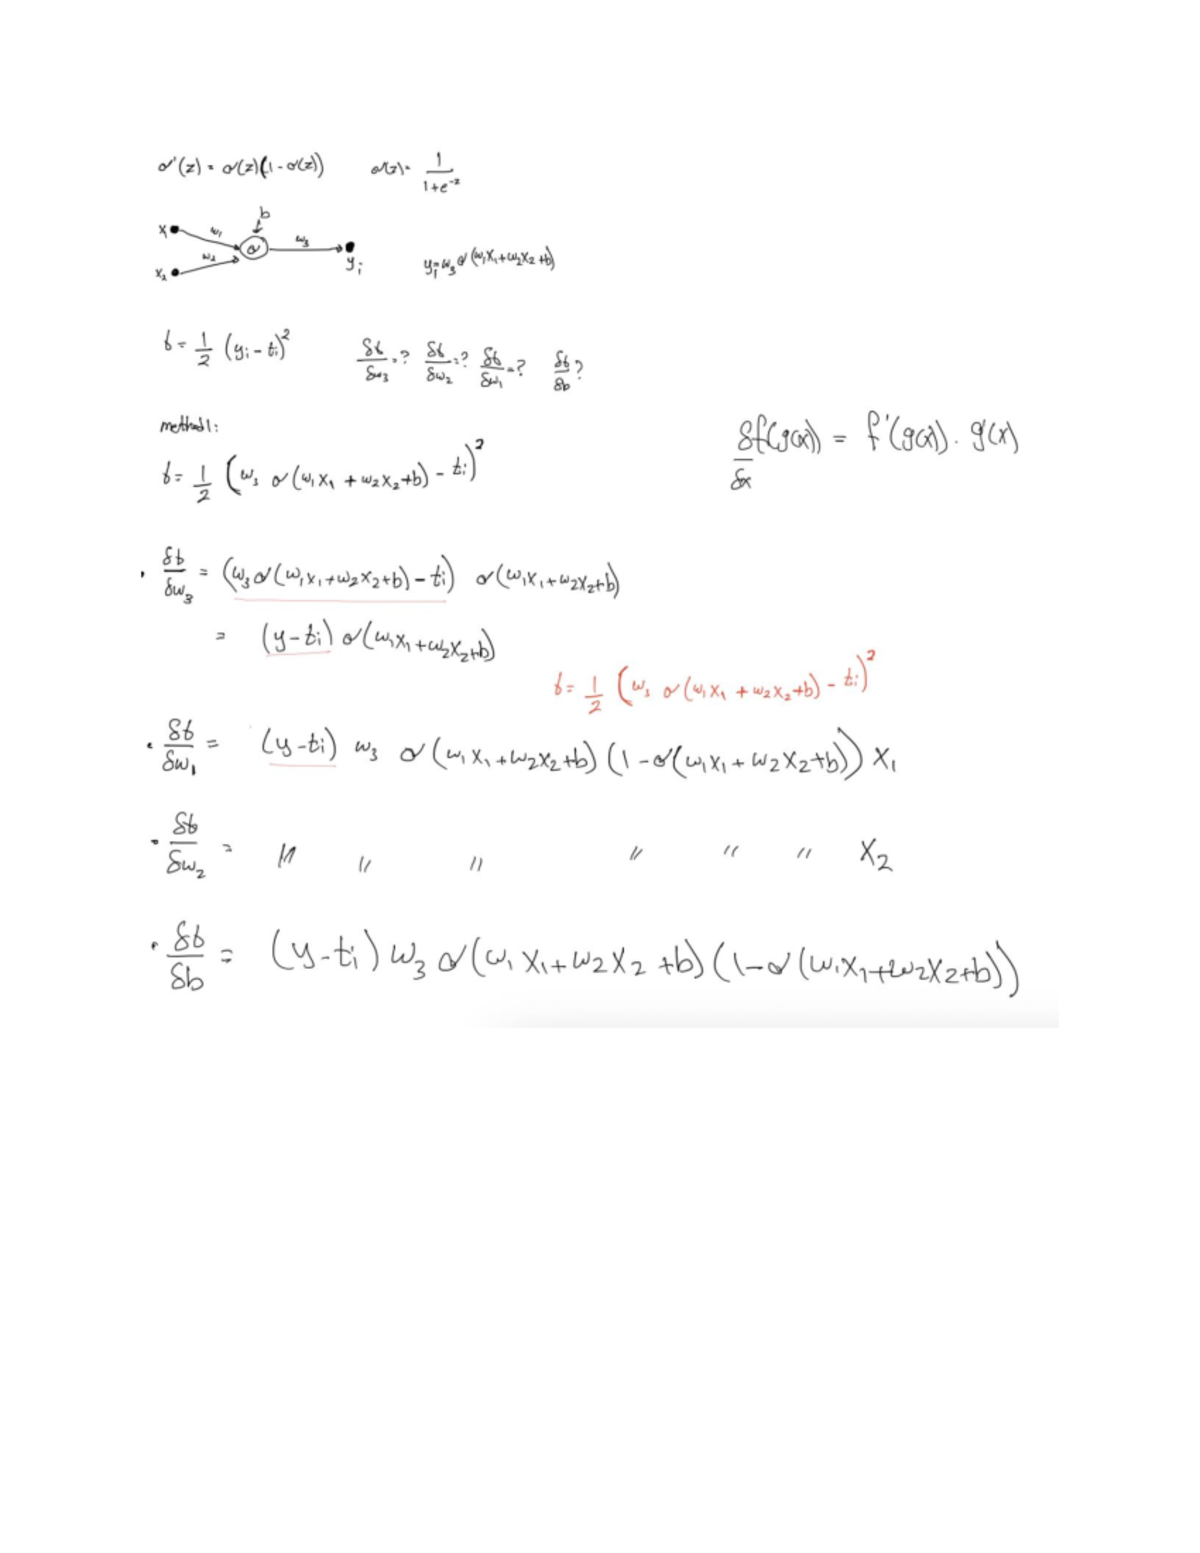 σ'(z) = σ(z)(1-σ(z))    σ(z) = 1/(1+e^-z)
b
x₁ w₁ σ w₃
x₂ w₂ yᵢ    yᵢ = w₃ σ(w₁x₁+w₂x₂+b)
ℓ = 1/2 (yᵢ - tᵢ)²    δℓ/δw₃ = ? δℓ/δw₂ = ? δℓ/δw₁ = ? δℓ/δb ?
method 1:
ℓ = 1/2 (w₃ σ(w₁x₁ + w₂x₂+b) - tᵢ)²    δf(g(x))/δx = f'(g(x)) · g'(x)
· δℓ/δw₃ = (w₃σ(w₁x₁+w₂x₂+b) - tᵢ) σ(w₁x₁+w₂x₂+b)
= (y-tᵢ) σ(w₁x₁+w₂x₂+b)
ℓ = 1/2 (w₃ σ(w₁x₁ + w₂x₂+b) - tᵢ)²
· δℓ/δw₁ = (y-tᵢ) w₃ σ(w₁x₁+w₂x₂+b) (1-σ(w₁x₁+w₂x₂+b)) x₁
· δℓ/δw₂ = " " " " " " x₂
· δℓ/δb = (y-tᵢ) w₃ σ(w₁x₁+w₂x₂+b) (1-σ(w₁x₁+w₂x₂+b))